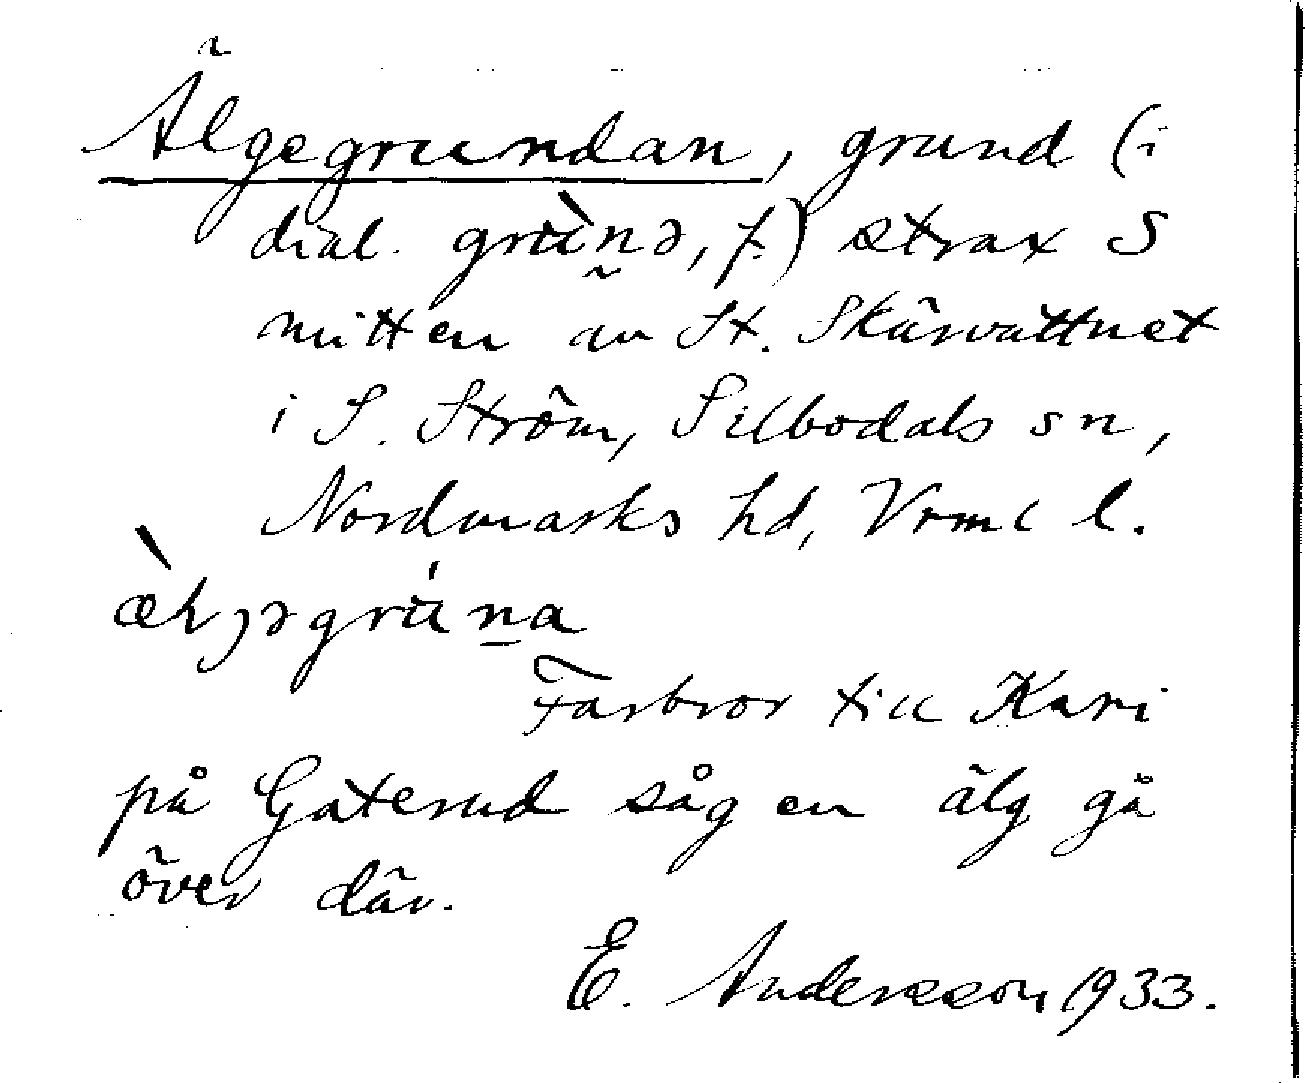 Älgegrundan, grund (i
dial. grùnə, f.) strax S
mitten av St. Skärvattnet
i S. Ström, Silbodals sn,
Nordmarks hd, Vrml l.
æ̀lɟəgrúna
Farbror till Kari
på Gaterud såg en älg gå
över där.
E. Andersson 1933.